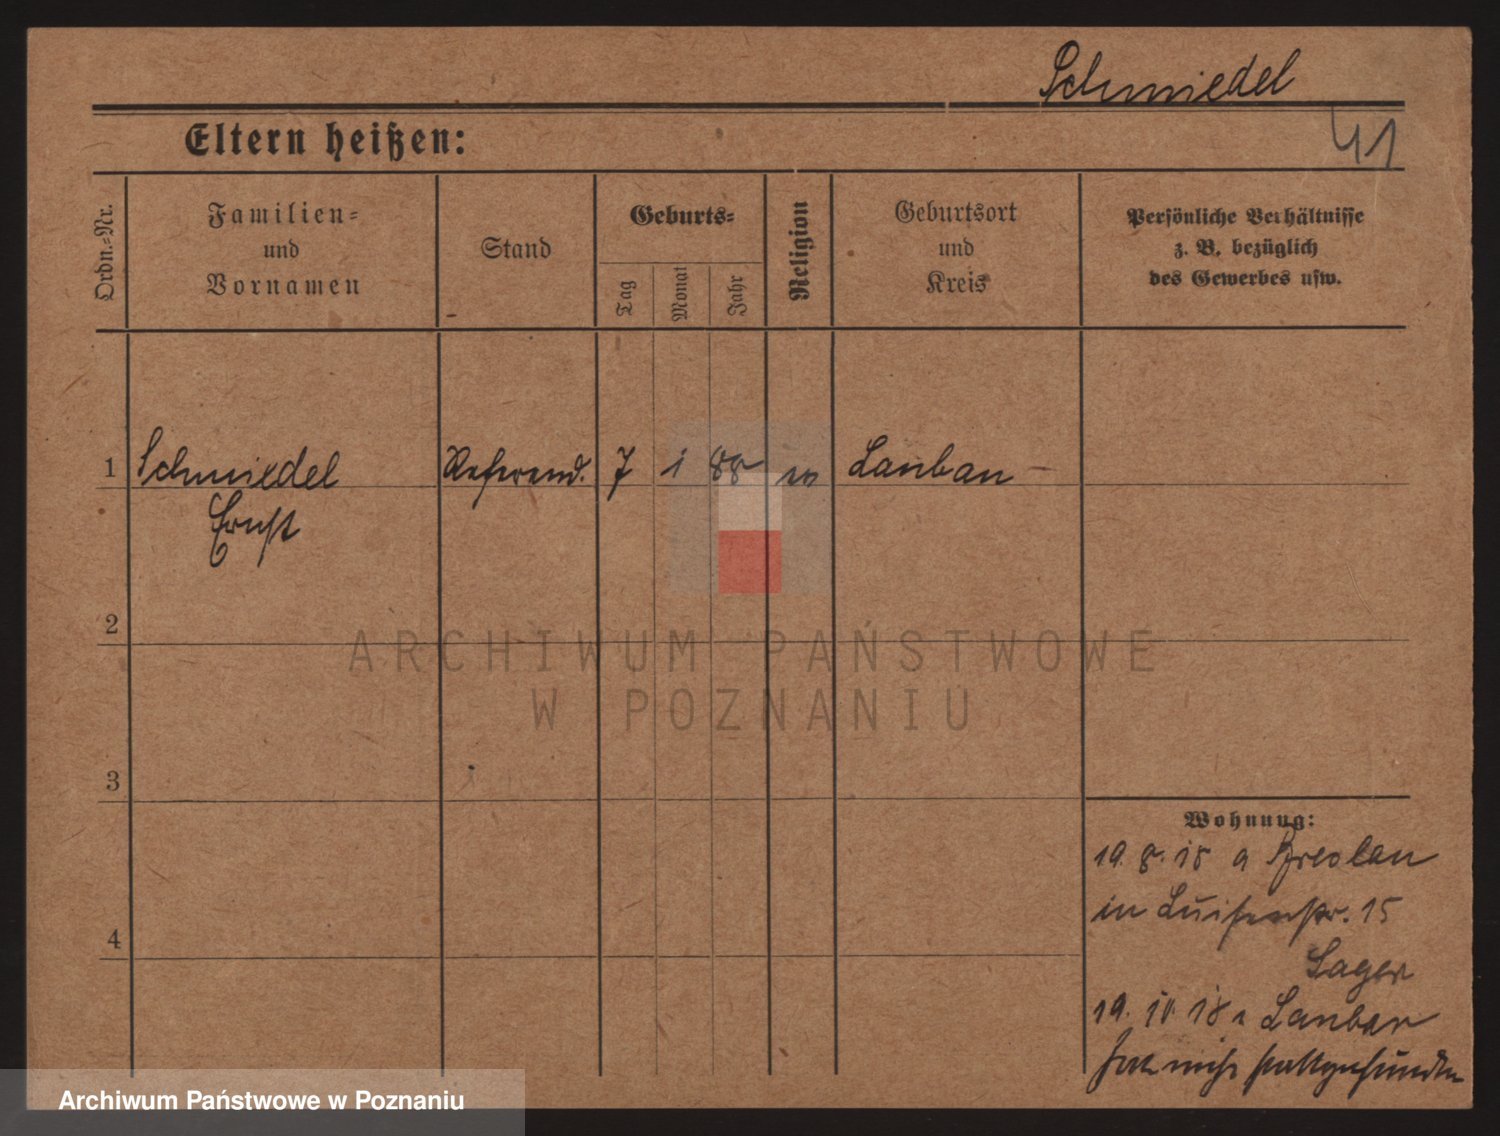 Schmiedel
41
Eltern heißen:
Ordn.=Nr.
Familien=
und
Vornamen
Stand
Geburts=
Tag
Monat
Jahr
Religion
Geburtsort
und
Kreis
Persönliche Verhältnisse
z. B. bezüglich
des Gewerbes usw.
1 Schmiedel Referend. 7 1 88 Lauban
Ernst
2
ARCHIWUM PAŃSTWOWE
W POZNANIU
3
Wohnung:
19. 8. 18 a Breslau
in Luisenstr. 15
4
Lager
19. 10. 18 Lauban
hat nicht stattgefunden
Archiwum Państwowe w Poznaniu